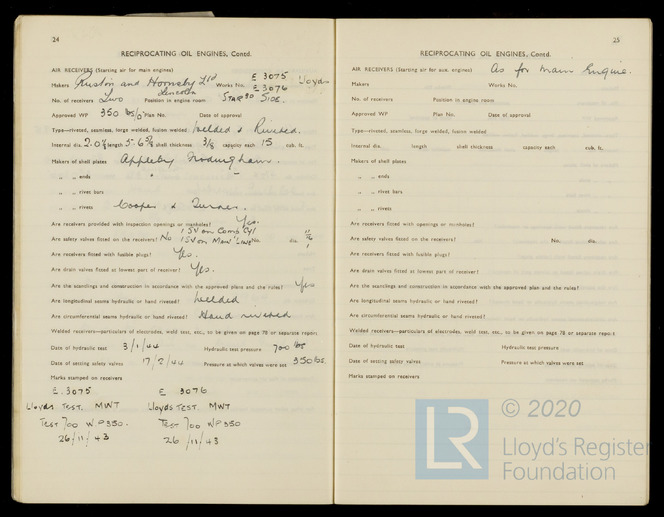 24
RECIPROCATING OIL ENGINES, Contd.
AIR RECEIVERS (Starting air for main engines)
E 3075
Makers Ruston and Hornsby Ltd Lincoln Works No. E 3076 Lloyds
No. of receivers Two Position in engine room STARBD SIDE.
Approved WP 350 lbs/□" Plan No. Date of approval
Type—riveted, seamless, forge welded, fusion welded Welded & Riveted.
Internal dia. 2.0⅛ length 5-6⅝ shell thickness 3/8 capacity each 15 cub. ft.
Makers of shell plates Appleby Frodingham.
„ „ ends "
„ „ rivet bars
„ „ rivets Cooper & Turner.
Are receivers provided with inspection openings or manholes? Yes.
1 SV on Comp Cyl
Are safety valves fitted on the receivers? No 1 SV on Man' Line No. dia.
Are receivers fitted with fusible plugs? Yes.
Are drain valves fitted at lowest part of receiver? Yes.
Are the scantlings and construction in accordance with the approved plans and the rules? Yes
Are longitudinal seams hydraulic or hand riveted? Welded
Are circumferential seams hydraulic or hand riveted? Hand riveted
Welded receivers—particulars of electrodes, weld test, etc., to be given on page 78 or separate report
Date of hydraulic test 3/1/44 Hydraulic test pressure 700 lbs
Date of setting safety valves 17/2/44 Pressure at which valves were set 350 lbs.
Marks stamped on receivers
E. 3075 E 3076
Lloyds TEST. MWT Lloyds TEST. MWT
TEST 700 WP350. TEST 700 WP350
26/11/43 26/11/43
25
RECIPROCATING OIL ENGINES, Contd.
AIR RECEIVERS (Starting air for aux. engines) As for Main Engine.
Makers Works No.
No. of receivers Position in engine room
Approved WP Plan No. Date of approval
Type—riveted, seamless, forge welded, fusion welded
Internal dia. length shell thickness capacity each cub. ft.
Makers of shell plates
„ „ ends
„ „ rivet bars
„ „ rivets
Are receivers fitted with openings or manholes?
Are safety valves fitted on the receivers? No. dia.
Are receivers fitted with fusible plugs?
Are drain valves fitted at lowest part of receiver?
Are the scantlings and construction in accordance with the approved plan and the rules?
Are longitudinal seams hydraulic or hand riveted?
Are circumferential seams hydraulic or hand riveted?
Welded receivers—particulars of electrodes, weld test, etc., to be given on page 78 or separate report
Date of hydraulic test Hydraulic test pressure
Date of setting safety valves Pressure at which valves were set
Marks stamped on receivers
LR © 2020
Lloyd's Register
Foundation